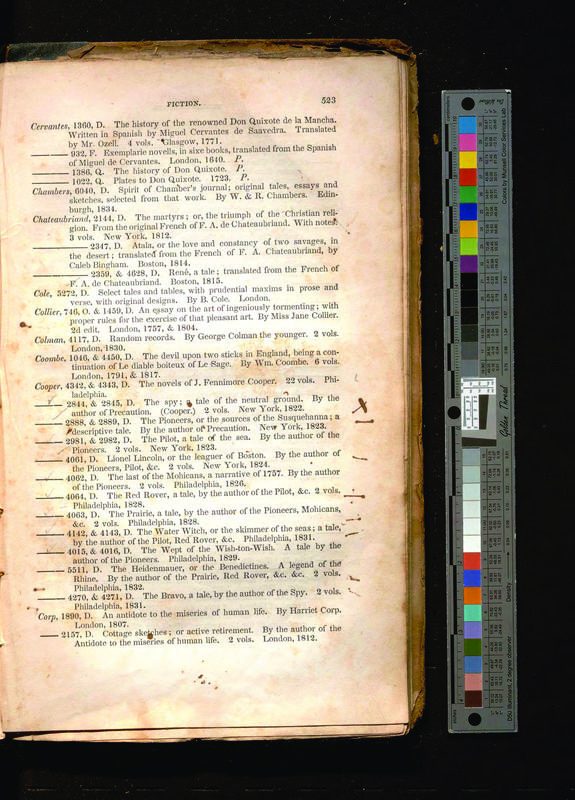 FICTION. 523
Cervantes, 1360, D. The history of the renowned Don Quixote de la Mancha.
Written in Spanish by Miguel Cervantes de Saavedra. Translated
by Mr. Ozell. 4 vols. Glasgow, 1771.
——— 932, F. Exemplarie novells, in sixe books, translated from the Spanish
of Miguel de Cervantes. London, 1640. P.
——— 1386, Q. The history of Don Quixote. P.
——— 1022, Q. Plates to Don Quixote. 1723. P.
Chambers, 6040, D. Spirit of Chamber's journal; original tales, essays and
sketches, selected from that work. By W. & R. Chambers. Edin-
burgh, 1834.
Chateaubriand, 2144, D. The martyrs; or, the triumph of the Christian reli-
gion. From the original French of F. A. de Chateaubriand. With notes.
3 vols. New York, 1812.
——— 2347, D. Atala, or the love and constancy of two savages, in
the desert; translated from the French of F. A. Chateaubriand, by
Caleb Bingham. Boston, 1814.
——— 2359, & 4628, D. René, a tale; translated from the French of
F. A. de Chateaubriand. Boston, 1815.
Cole, 5272, D. Select tales and tables, with prudential maxims in prose and
verse, with original designs. By B. Cole. London.
Collier, 746, O. & 1459, D. An essay on the art of ingeniously tormenting; with
proper rules for the exercise of that pleasant art. By Miss Jane Collier.
2d edit. London, 1757, & 1804.
Colman, 4117, D. Random records. By George Colman the younger. 2 vols.
London, 1830.
Coombe, 1046, & 4450, D. The devil upon two sticks in England, being a con-
tinuation of Le diable boiteux of Le Sage. By Wm. Coombe. 6 vols.
London, 1791, & 1817.
Cooper, 4342, & 4343, D. The novels of J. Fennimore Cooper. 22 vols. Phi-
ladelphia.
——— 2844, & 2845, D. The spy; a tale of the neutral ground. By the
author of Precaution. (Cooper.) 2 vols. New York, 1822.
——— 2888, & 2889, D. The Pioneers, or the sources of the Susquehanna; a
descriptive tale. By the author of Precaution. New York, 1823.
——— 2981, & 2982, D. The Pilot, a tale of the sea. By the author of the
Pioneers. 2 vols. New York, 1823.
——— 4061, D. Lionel Lincoln, or the leaguer of Boston. By the author of
the Pioneers, Pilot, &c. 2 vols. New York, 1824.
——— 4062, D. The last of the Mohicans, a narrative of 1757. By the author
of the Pioneers. 2 vols. Philadelphia, 1826.
——— 4064, D. The Red Rover, a tale, by the author of the Pilot, &c. 2 vols.
Philadelphia, 1828.
——— 4063, D. The Prairie, a tale, by the author of the Pioneers, Mohicans,
&c. 2 vols. Philadelphia, 1828.
——— 4142, & 4143, D. The Water Witch, or the skimmer of the seas; a tale,
by the author of the Pilot, Red Rover, &c. Philadelphia, 1831.
——— 4015, & 4016, D. The Wept of the Wish-ton-Wish. A tale by the
author of the Pioneers. Philadelphia, 1829.
——— 5511, D. The Heidenmauer, or the Benedictines. A legend of the
Rhine. By the author of the Prairie, Red Rover, &c. &c. 2 vols.
Philadelphia, 1832.
——— 4270, & 4271, D. The Bravo, a tale, by the author of the Spy. 2 vols.
Philadelphia, 1831.
Corp, 1890, D. An antidote to the miseries of human life. By Harriet Corp.
London, 1807.
——— 2157, D. Cottage sketches; or active retirement. By the author of the
Antidote to the miseries of human life. 2 vols. London, 1812.
Golden Thread